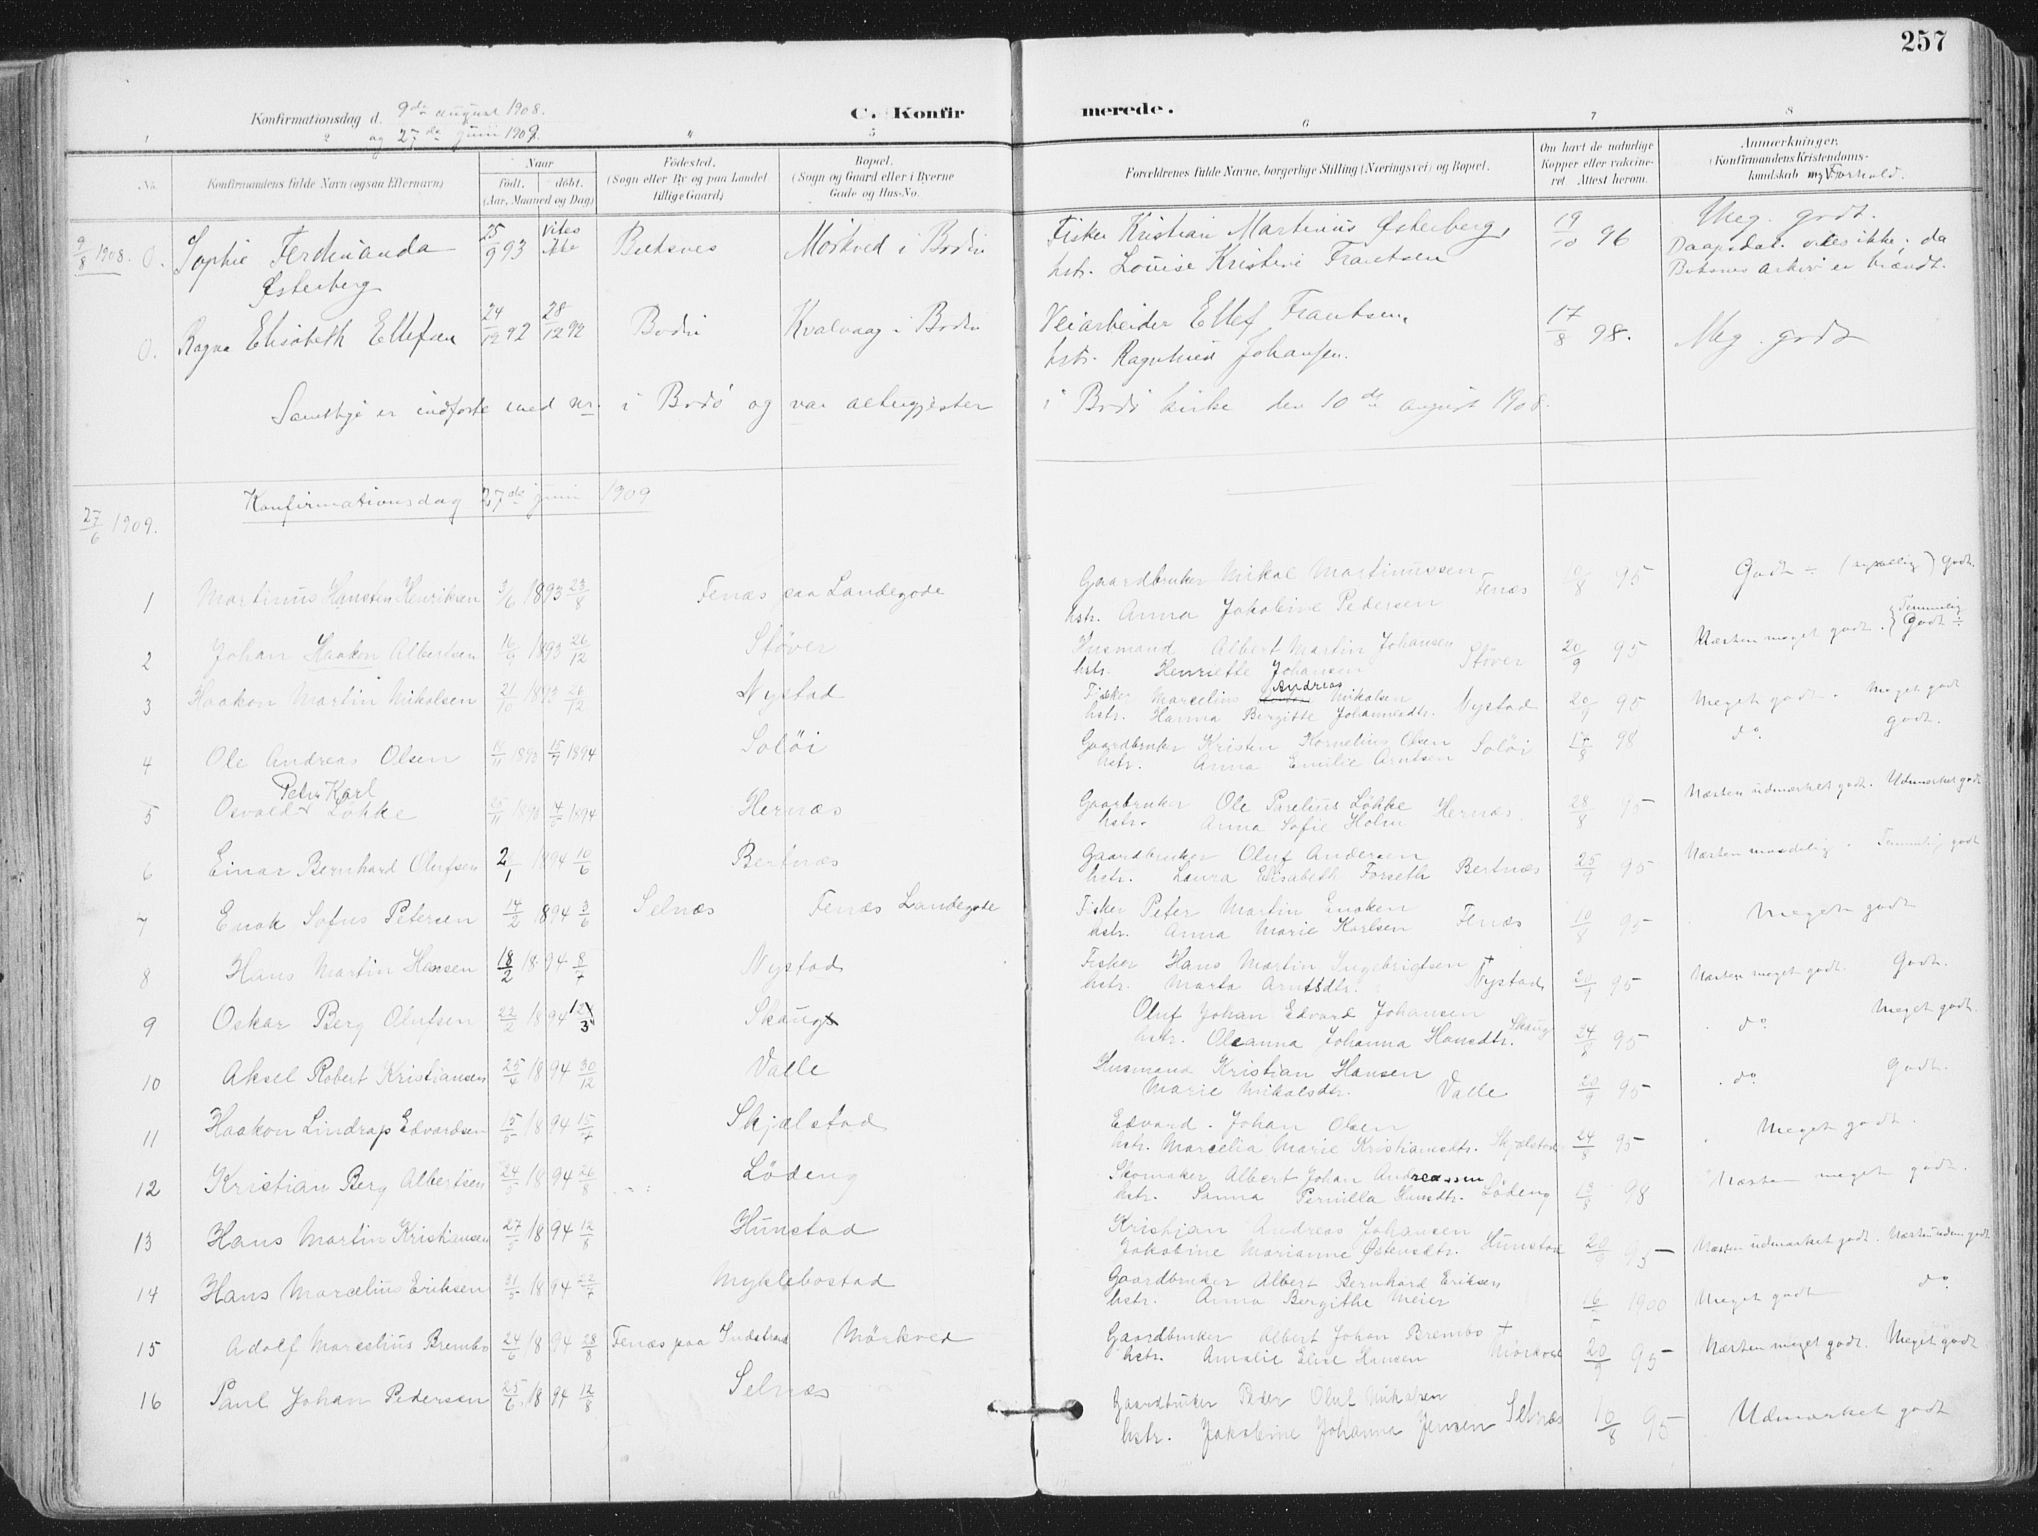 257
Konfirmationsdag d. 9de august 1908.
og 27de juni 1909.
C. Konfirmerede.
1 2 5 6 7 8
No.
Konfirmandens fulde Navn (ogsaa Efternavn)
Naar
født. døbt.
(Aar, Maaned og Dag)
Fødested.
(Sogn eller By og paa Landet
tillige Gaard)
Bopæl.
(Sogn og Gaard eller i Byerne
Gade og Hus-No.
Forældrenes fulde Navne, borgerlige Stilling (Næringsvei) og Bopæl.
Om havt de naturlige
Kopper eller vakcine-
ret. Attest herom.
Anmærkninger.
(Konfirmandens Kristendoms-
kundskab og Forhold.
9/8 1908. 0. Sophie Ferdinanda 25/9 93 Vites ikke Buksnes Mørkved i Bodin Fisker Kristian Martinus Østerberg, 19/10 96 Meg. godt.
Østerberg hstr. Louise Kristine Frantsen Daapsdat. vites ikke; da
Buksnes arkiv er brændt.
0. Ragna Elisabeth Ellefsen 24/12 92 28/12 92 Bodin Kvalvaag i Bodin Veiarbeider Ellef Frantsen, 17/8 98. Meg. godt
hstr. Ragnhild Johansen.
Samtlige er indførte med nr. i Bodø og var altergjester i Bodø kirke den 10de august 1908.
27/6 1909. Konfirmationsdag 27de juni 1909
1 Martinus Hansten Henriksen 3/6 1893 23/8 Fenæs paa Landegode Gaardbruker Mikal Martinussen Fenæs 10/8 95 Godt ÷ godt.
hstr. Anna Jakobine Pedersen
2 Johan Haakon Albertsen 16/9 1893 26/12 Støver Husmand Albert Martin Johansen Støver 20/9 95 Næsten meget godt. Temmelig Godt ÷
hstr. Henriette Johansen
3 Haakon Martin Nikolsen 21/10 1893 26/12 Nystad Fisker Marcelius Andreas Nikolsen Nystad 20/9 95 Meget godt. Meget godt
hstr. Hanna Bergitte Johannesdtr.
4 Ole Andreas Olsen 1893 15/7 1894 Soløi Gaardbruker Kristen Kornelius Olsen Soløi 17/8 98 do. godt.
hstr. Anna Emilie Arntsen
5 Osvald Peter Karl Løkke 1893 1894 Hernæs Gaarbruker Ole Parelius Løkke Hernæs. 28/8 95 Næsten udmerket godt. Udmerket godt
hstr. Anna Sofie Holm
6 Einar Bernhard Olufsen 2/1 1894 10/6 Bertnæs Gaardbruker Oluf Andersen Bertnæs 25/9 95 Næsten maadelig. Temmelig godt
hstr. Laura Elisabeth Forseth
7 Enok Sofus Petersen 14/2 1894 3/6 Selnæs Fenæs Landegode Fisker Peter Martin Enoksen Fenæs 10/8 95 Meget godt
hstr. Anna Marie Karlsen
8 Hans Martin Hansen 18/2 1894 8/7 Nystad Fisker Hans Martin Ingebrigtsen + Nystad 20/9 95 Næsten meget godt. Godt.
hstr. Marta Arntsdtr.
9 Oskar Berg Olufsen 22/2 1894 Skaug Oluf Johan Edvard Johansen Skaug 24/8 95 do. Meget godt.
hstr. Oleanna Johanna Hansdtr.
10 Aksel Robert Kristiansen 25/4 1894 30/12 Valle Husmand Kristian Hansen 20/9 95 do. Godt.
Marie Nikolsdtr. Valle
11 Haakon Lindrup Edvardsen 15/5 1894 15/7 Skjælstad Edvard Johan Olsen 24/8 95 Meget godt.
hstr. Marcelia Marie Kristiansdtr. Skjælstad
12 Kristian Berg Albertsen 24/5 1894 26/8 Løding Skomaker Albert Johan Andreassen 13/8 98 Næsten meget godt.
hstr. Sanna Pernilla Hansdtr. Løding
13 Hans Martin Kristiansen 27/5 1894 12/8 Hunstad Kristjan Andreas Johansen 20/9 95 Næsten udmærket godt. Næsten udm. godt
Jakobine Marianne Østensdtr. Hunstad
14 Hans Marcelius Eriksen 31/5 1894 22/7 Myklebostad Gaardbruker Albert Bernhard Eriksen 16/5 1900 Meget godt do
hstr. Anna Bergithe Meier
15 Adolf Marselius Brembo 24/6 1894 28/8 Fenæs paa Indstrand Mørkved Gaardbruker Albert Johan Brembo + Mørkved 20/9 95 Næsten meget godt. Meget godt
hstr. Amalie Elise Hansen
16 Paul Johan Pedersen 25/6 1894 12/8 Selnæs Gaardbruker Peder Oluf Mikalsen Selnæs 10/8 95 Udmærket godt
hstr. Jakobine Johanna Jensen